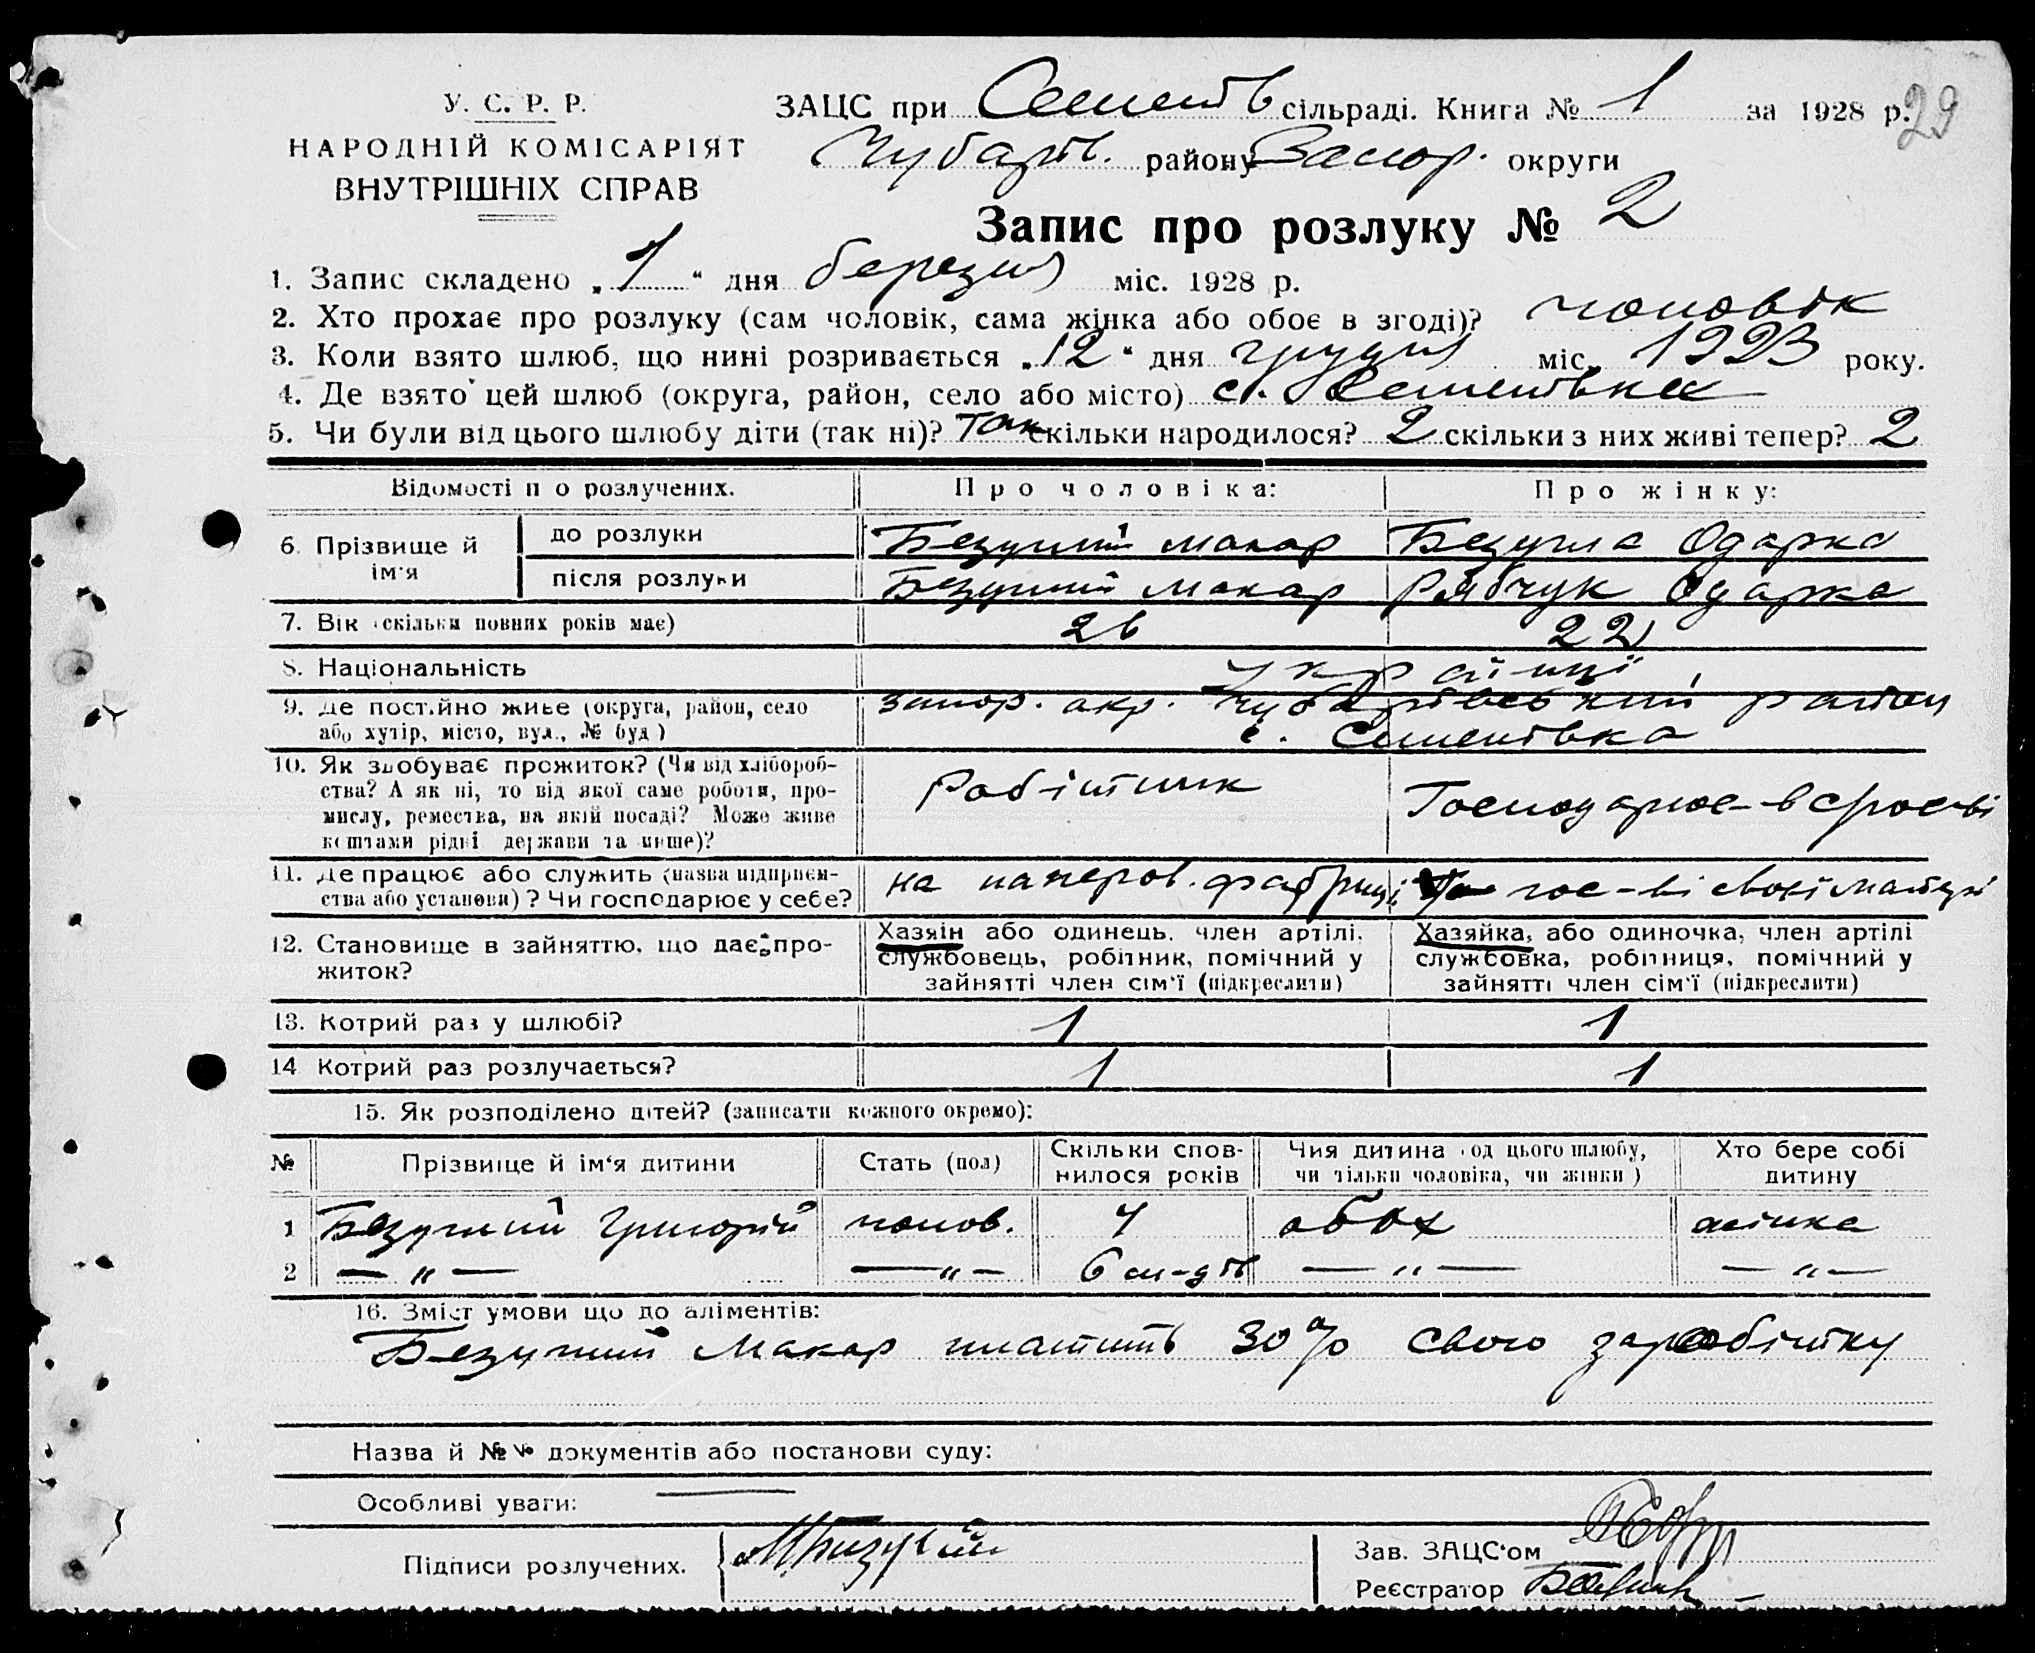 У. С. Р. Р.
НАРОДНІЙ КОМІСАРІЯТ
ВНУТРІШНІХ СПРАВ
ЗАЦС при Сементв сільраді. Книга № 1 за 1928 р. 29
Чубарів. району Запор. округи
Запис про розлуку № 2
1. Запис складено „1“ дня березня міс. 1928 р.
2. Хто прохає про розлуку (сам чоловік, сама жінка або обоє в згоді)? чоловік
3. Коли взято шлюб, що нині розривається „12“ дня грудня міс. 1923 року.
4. Де взято цей шлюб (округа, район, село або місто) с. Сементівка
5. Чи були від цього шлюбу діти (так ні)? Так скільки народилося? 2 скільки з них живі тепер? 2
Відомості п о розлучених. Про чоловіка: Про жінку:
6. Прізвище й ім'я до розлуки Безуглий Макар Безугла Одарка
після розлуки Безуглий Макар Рябчук Одарка
7. Вік (скільки повних років має) 26 22
8. Національність Українці
9. Де постійно живе (округа, район, село Запор. окр. Чубарівський район
або хутір, місто, вул., № буд) с. Сементівка
10. Як здобуває прожиток? (Чи від хлібороб-
ства? А як ні, то від якої саме роботи, про-
мислу, ремества, на якій посаді? Може живе
коштами рідні держави та инше)? Робітник
11. Де працює або служить (назва підприєм- на паперов. фабриці
ства або установи)? Чи господарює у себе?
12. Становище в зайняттю, що дає про-
житок?
Хазяїн або одинець, член артілі,
службовець, робітник, помічний у
зайнятті член сім'ї (підкреслити)
Хазяйка, або одиночка, член артілі
службовка, робітниця, помічний у
зайнятті член сім'ї (підкреслити)
13. Котрий раз у шлюбі? 1 1
14 Котрий раз розлучається? 1 1
15. Як розподілено дітей? (записати кожного окремо):
№ Прізвище й ім'я дитини Стать (пол) Скільки спов-нилося років Чия дитина (од цього шлюбу, чи тільки чоловіка, чи жінки) Хто бере собі дитину
1 Безуглий Григорій чолов. 4 обох жінка
2 — „ — — „ — — „ — — „ —
16. Зміст умови що до аліментів:
Безуглий Макар платить 30% свого заробітку
Назва й №№ документів або постанови суду:
Особливі уваги: —
Підписи розлучених.
Зав. ЗАЦС'ом
Реєстратор